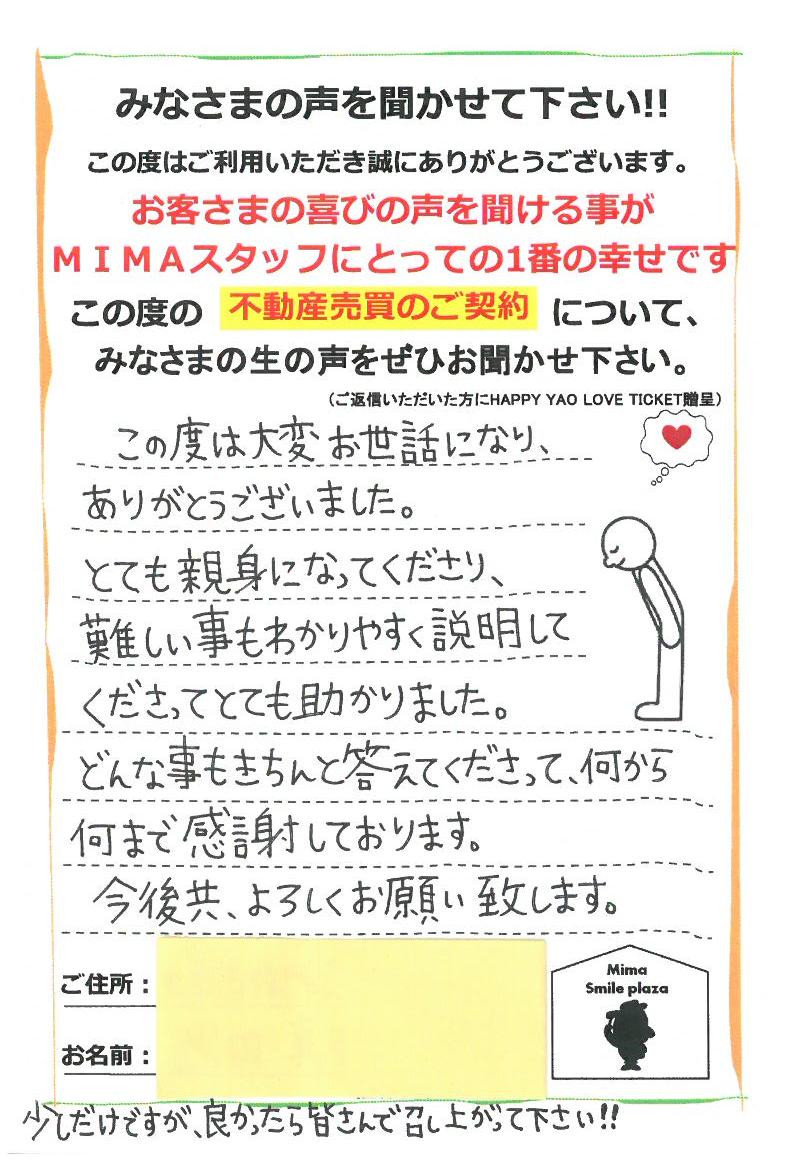 みなさまの声を聞かせて下さい!!
この度はご利用いただき誠にありがとうございます。
お客さまの喜びの声を聞ける事が
ＭＩＭＡスタッフにとっての1番の幸せです
この度の 不動産売買のご契約 について、
みなさまの生の声をぜひお聞かせ下さい。
（ご返信いただいた方にHAPPY YAO LOVE TICKET贈呈）
この度は大変お世話になり、
ありがとうございました。
とても親身になってくださり、
難しい事もわかりやすく説明して
くださってとても助かりました。
どんな事もきちんと答えてくださって、何から
何まで感謝しております。
今後共、よろしくお願い致します。
ご住所：
お名前：
Mima
Smile plaza
少しだけですが、良かったら皆さんで召し上がって下さい!!